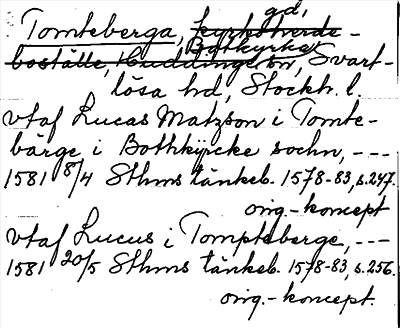 Tomteberga, gd, kyrkoherde-
boställe, Huddinge Botkyrka sn, Svart-
lösa hd, Stockh. l.
vtaf Lucas Matzson i Tomte-
bärge i Bothkyrcke sochn, ---
1581 8/4 Sthms tänkeb. 1578-83, s. 247.
orig.-koncept
vtaf Lucus i Tompteberge, ---
1581 20/5 Sthms tänkeb. 1578-83, s. 256.
orig.-koncept.